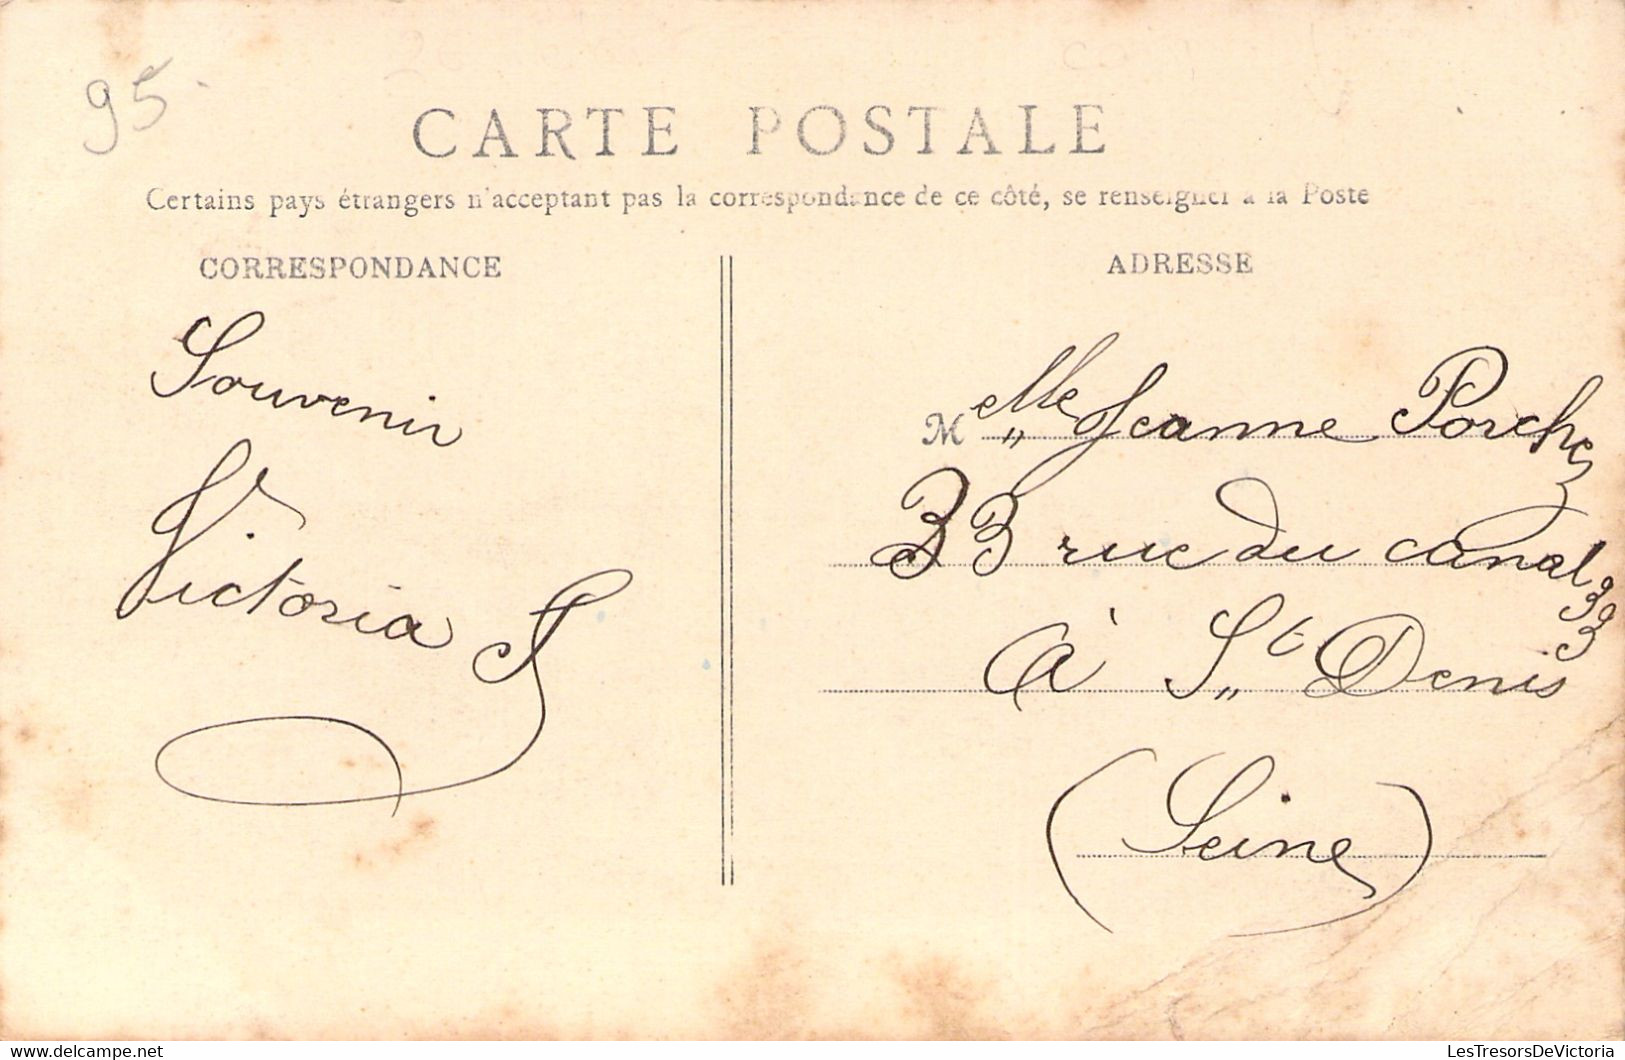 95
CARTE POSTALE
Certains pays étrangers n'acceptant pas la correspondance de ce côté, se renseigner à la Poste
CORRESPONDANCE
Souvenir
Victoria S
ADRESSE
Melle Jeanne Porche
33 rue du canal 33
à St Denis
(Seine)
LesTresorsDeVictoria